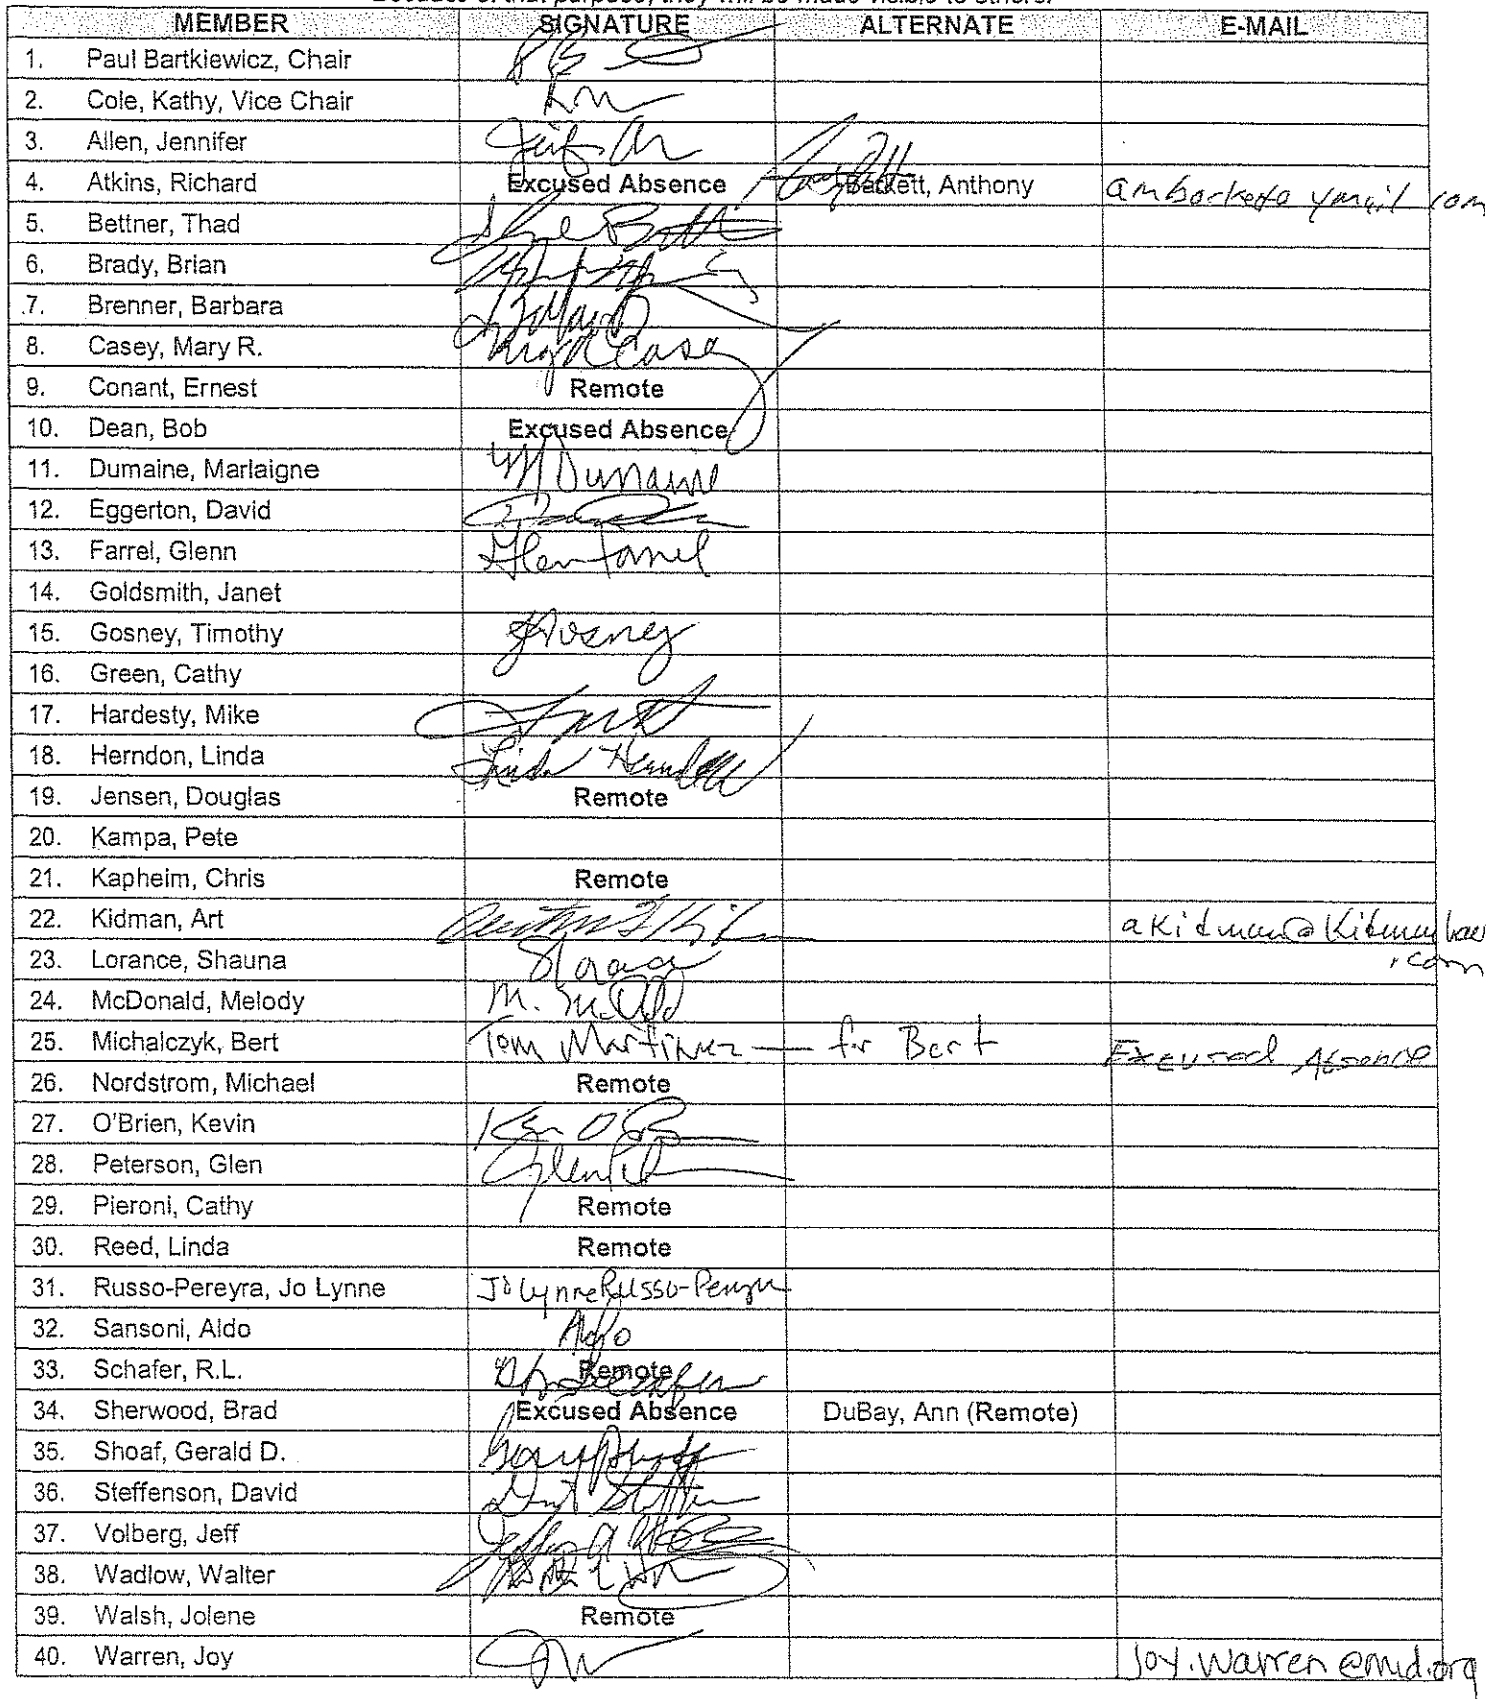 Because of that purpose, they will be made visible to others.
MEMBER SIGNATURE ALTERNATE E-MAIL
1. Paul Bartkiewicz, Chair
2. Cole, Kathy, Vice Chair
3. Allen, Jennifer
4. Atkins, Richard Excused Absence Barkett, Anthony
5. Bettner, Thad
6. Brady, Brian
7. Brenner, Barbara
8. Casey, Mary R. Mary R Casey
9. Conant, Ernest Remote
10. Dean, Bob Excused Absence
11. Dumaine, Marlaigne M Dumaine
12. Eggerton, David
13. Farrel, Glenn Glenn Farrel
14. Goldsmith, Janet
15. Gosney, Timothy Gosney
16. Green, Cathy
17. Hardesty, Mike
18. Herndon, Linda Linda Herndon
19. Jensen, Douglas Remote
20. Kampa, Pete
21. Kapheim, Chris Remote
22. Kidman, Art akidman@kidmanlaw
.com
23. Lorance, Shauna
24. McDonald, Melody
25. Michalczyk, Bert Tom Martinez — for Bert Excused Absence
26. Nordstrom, Michael Remote
27. O'Brien, Kevin
28. Peterson, Glen
29. Pieroni, Cathy Remote
30. Reed, Linda Remote
31. Russo-Pereyra, Jo Lynne Jo Lynne Russo-Pereyra
32. Sansoni, Aldo Aldo
33. Schafer, R.L. Remote
34. Sherwood, Brad Excused Absence DuBay, Ann (Remote)
35. Shoaf, Gerald D.
36. Steffenson, David
37. Volberg, Jeff
38. Wadlow, Walter
39. Walsh, Jolene Remote
40. Warren, Joy JW joy.warren@mid.org